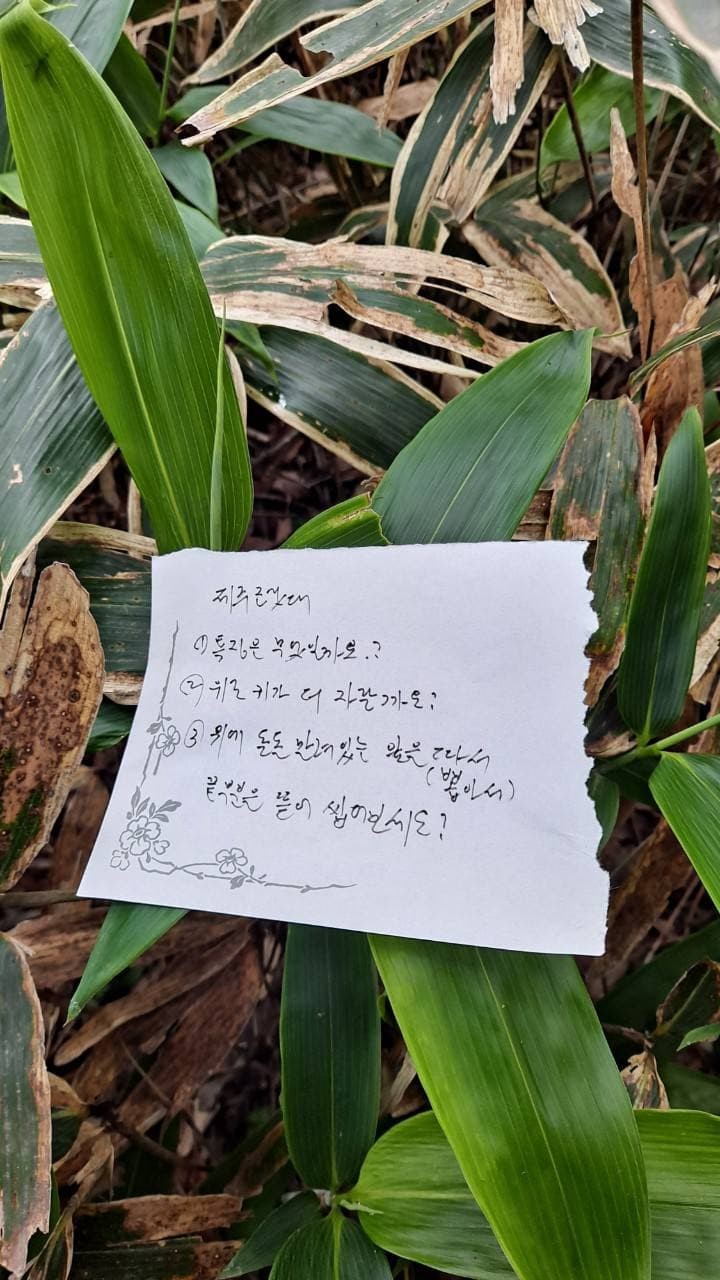 제주조릿대
① 특징은 무엇일까요?
② 위로 키가 더 자랄까요?
③ 위에 돌돌 말려있는 잎을 따서
(뽑아서)
끝부분을 뜯어 씹어보세요?